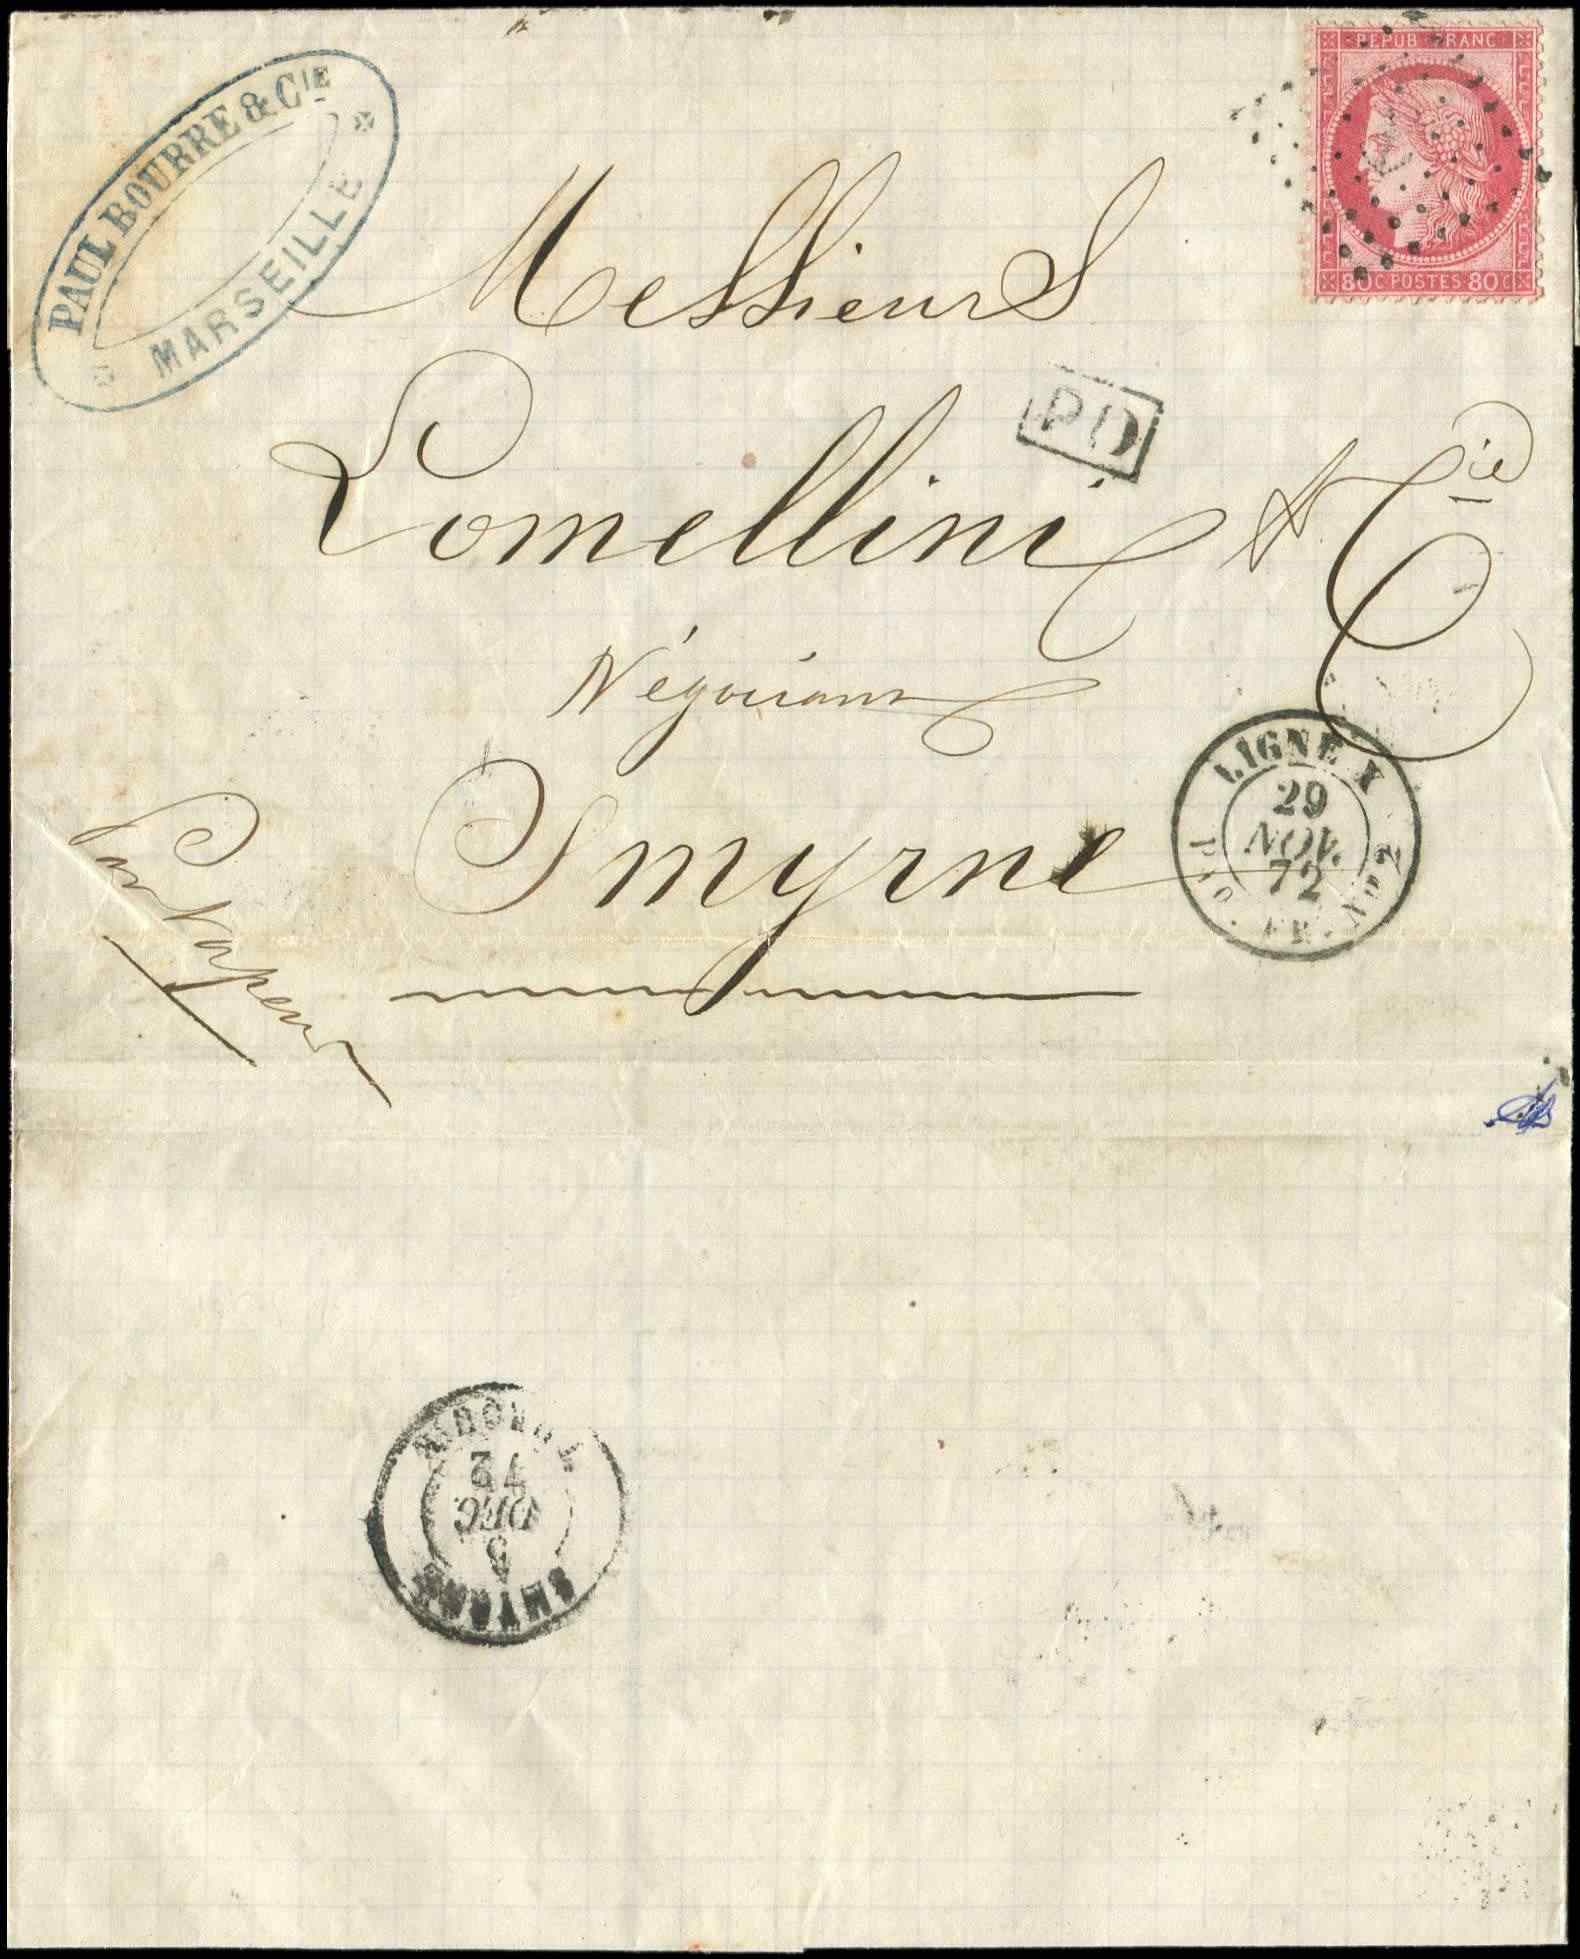 PAUL BOURRE & CIE
MARSEILLE
REPUB FRANC
80C POSTES 80C
Messieurs
PD
Lomellini & Cie
Négociants
Smyrne
LIGNE X
29
NOV.
72
PAQ. FR. No 2
Par Vapeur
SMYRNE
5
DEC
72